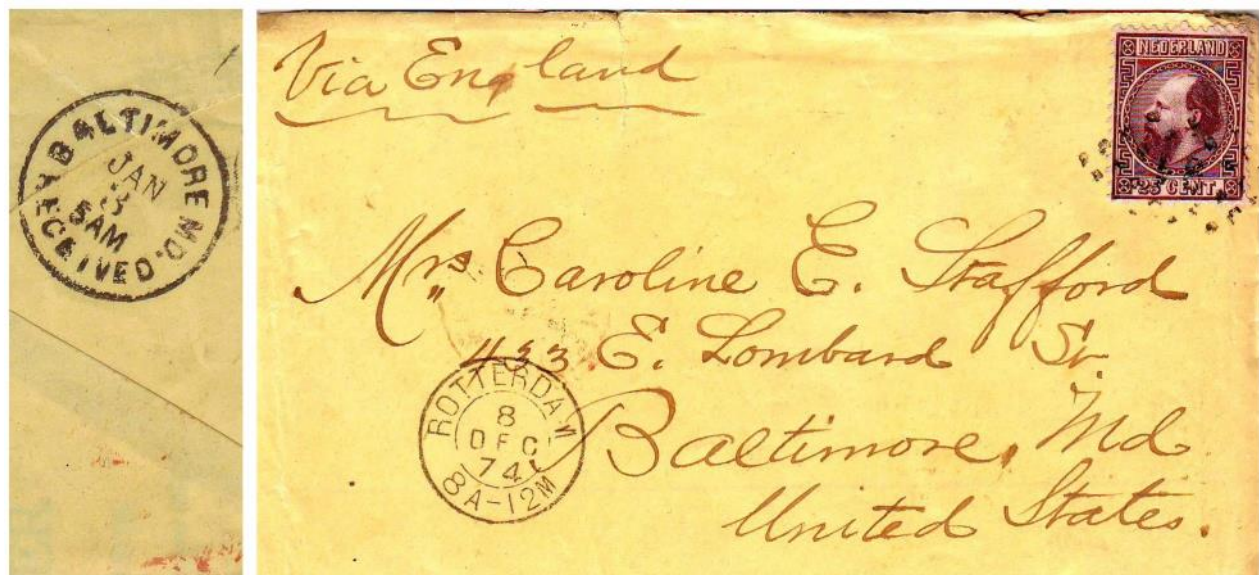 BALTIMORE MD.
JAN
3
5AM
RECEIVED.
Via England
NEDERLAND
25 CENT.
Mrs Caroline E. Stafford
433 E. Lombard St.
Baltimore, Md
United States.
ROTTERDAM
8
DEC
74
8A-12M